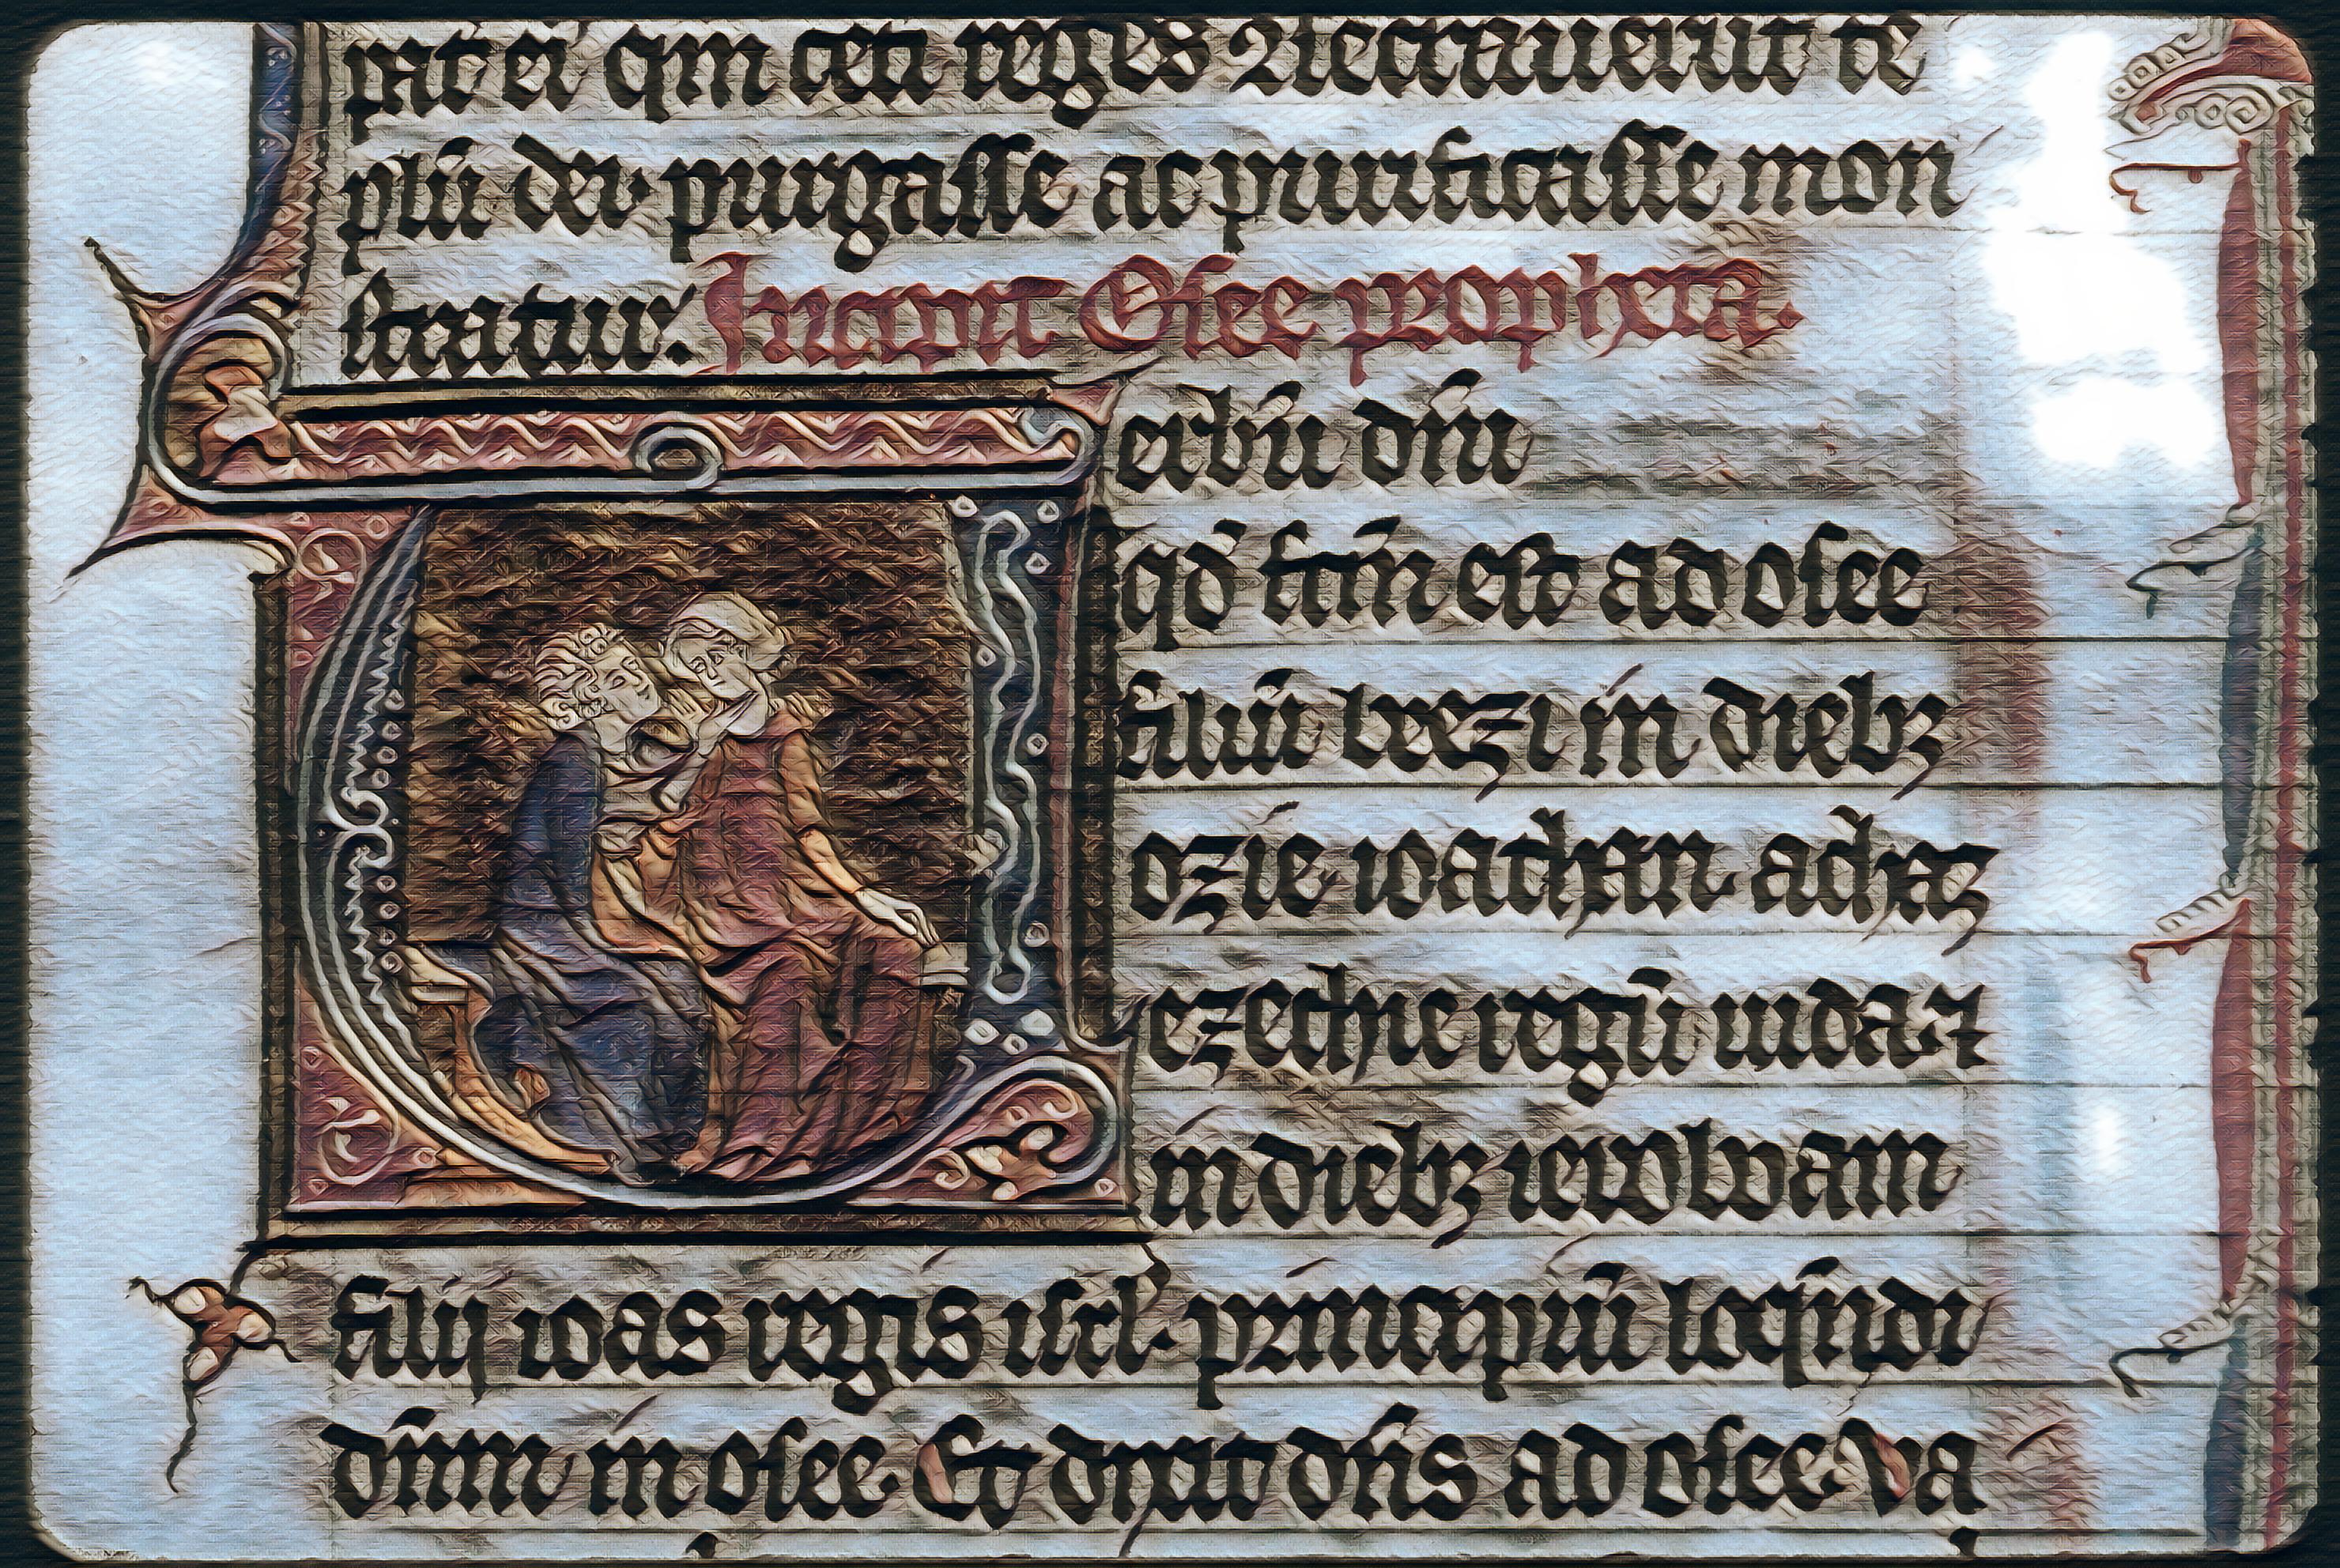 pat ei qm ceti reges ⁊lectauerūt tē
plū dei· purgasse ac purificasse mon
stratur. Incipit Osee propheta.
erbū dñi
qd̄ fc̄m est ad osee
filiū beezi in dieb;
ozie· ioathan· achaz
ezechie regū iuda· ⁊
in dieb; ieroboam
filij ioas regis isrl· principiū loq̄ndi
dñm in osee. Et dixit dn̄s ad osee. Va